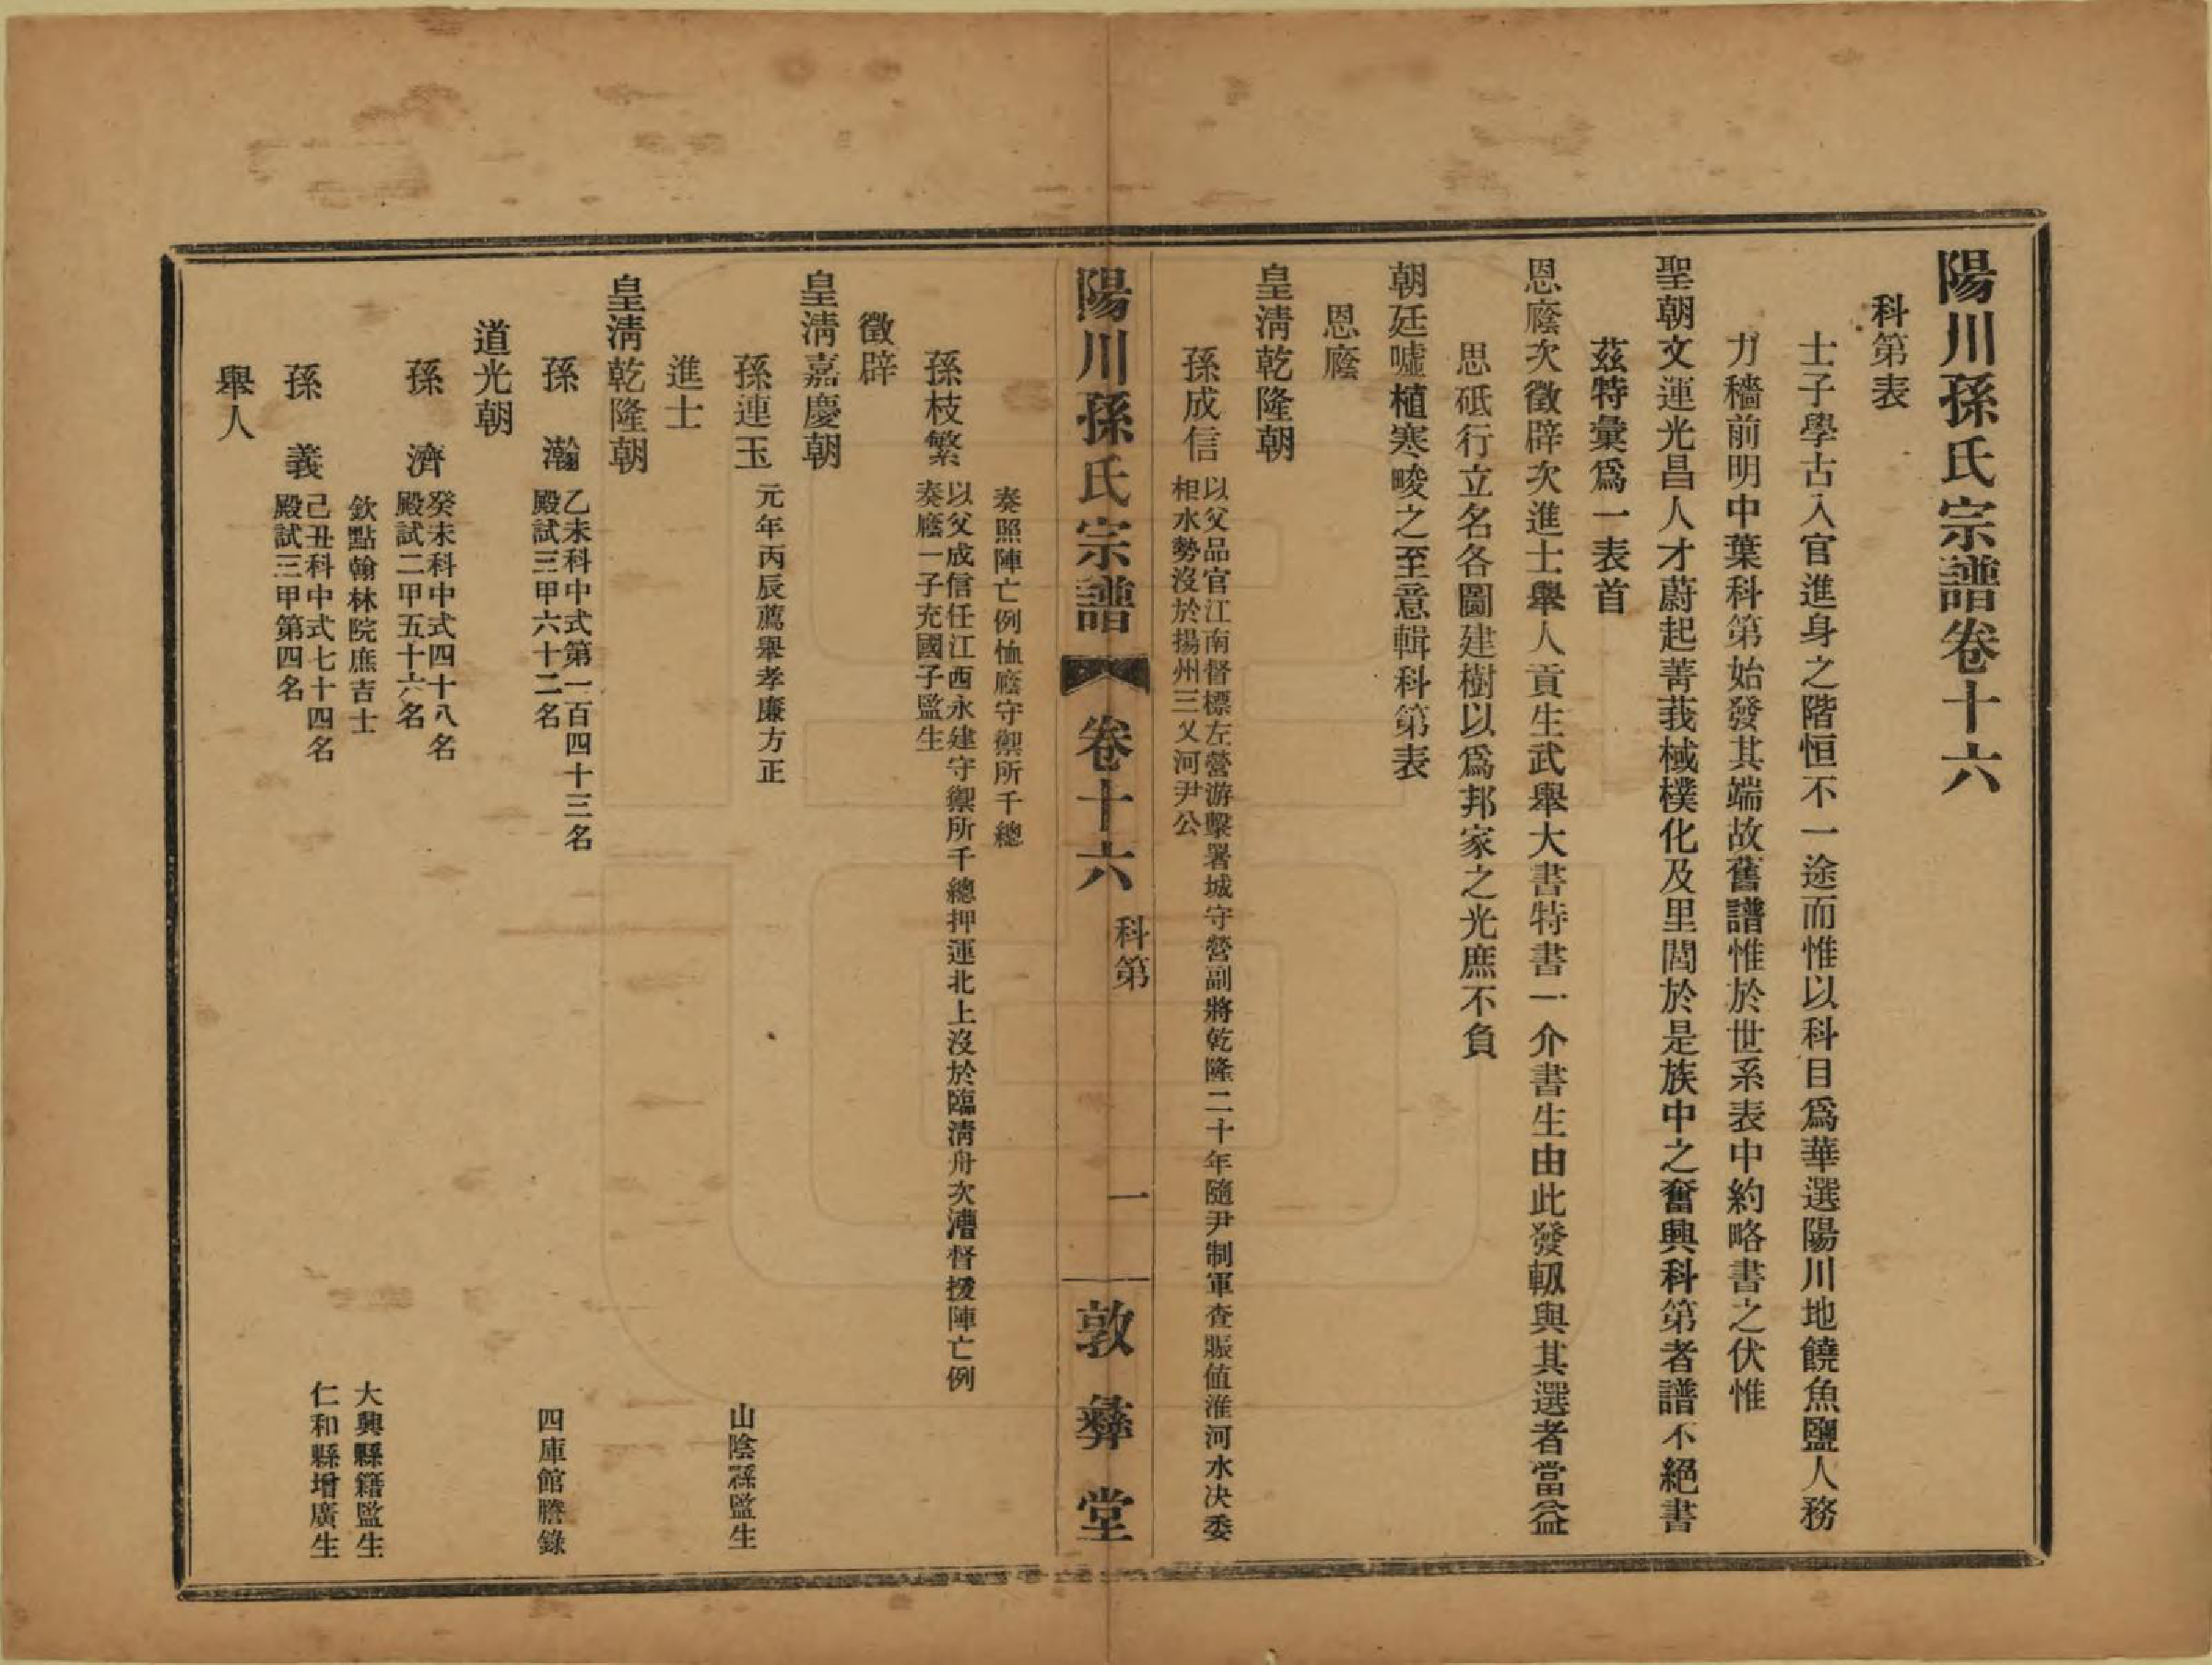 陽川孫氏宗譜卷十六
科第表
士子學古入官進身之階恒不一途而惟以科目爲華選陽川地饒魚鹽人務
力穡前明中葉科第始發其端故舊譜惟於世系表中約略書之伏惟
聖朝文運光昌人才蔚起菁莪棫樸化及里閭於是族中之奮興科第者譜不絕書
茲特彙爲一表首
恩廕次徵辟次進士舉人貢生武舉大書特書一介書生由此發軔與其選者當益
思砥行立名各圖建樹以爲邦家之光庶不負
朝廷噓植寒畯之至意輯科第表
恩廕
皇淸乾隆朝
孫成信
以父品官江南督標左營游擊署城守營副將乾隆二十年隨尹制軍查賑値淮河水決委
相水勢沒於揚州三乂河尹公
陽川孫氏宗譜 卷十六 科第 一 敦彝堂
奏照陣亡例恤廕守禦所千總
孫枝繁
以父成信任江西永建守禦所千總押運北上沒於臨淸舟次漕督援陣亡例
奏廕一子充國子監生
徵辟
皇淸嘉慶朝
孫連玉
元年丙辰薦舉孝廉方正
山陰縣監生
進士
皇淸乾隆朝
孫 瀚
乙未科中式第一百四十三名
殿試三甲六十二名
四庫館謄錄
道光朝
孫 濟
癸未科中式四十八名
殿試二甲五十六名
欽點翰林院庶吉士
大興縣籍監生
孫 義
己丑科中式七十四名
殿試三甲第四名
仁和縣增廣生
舉人